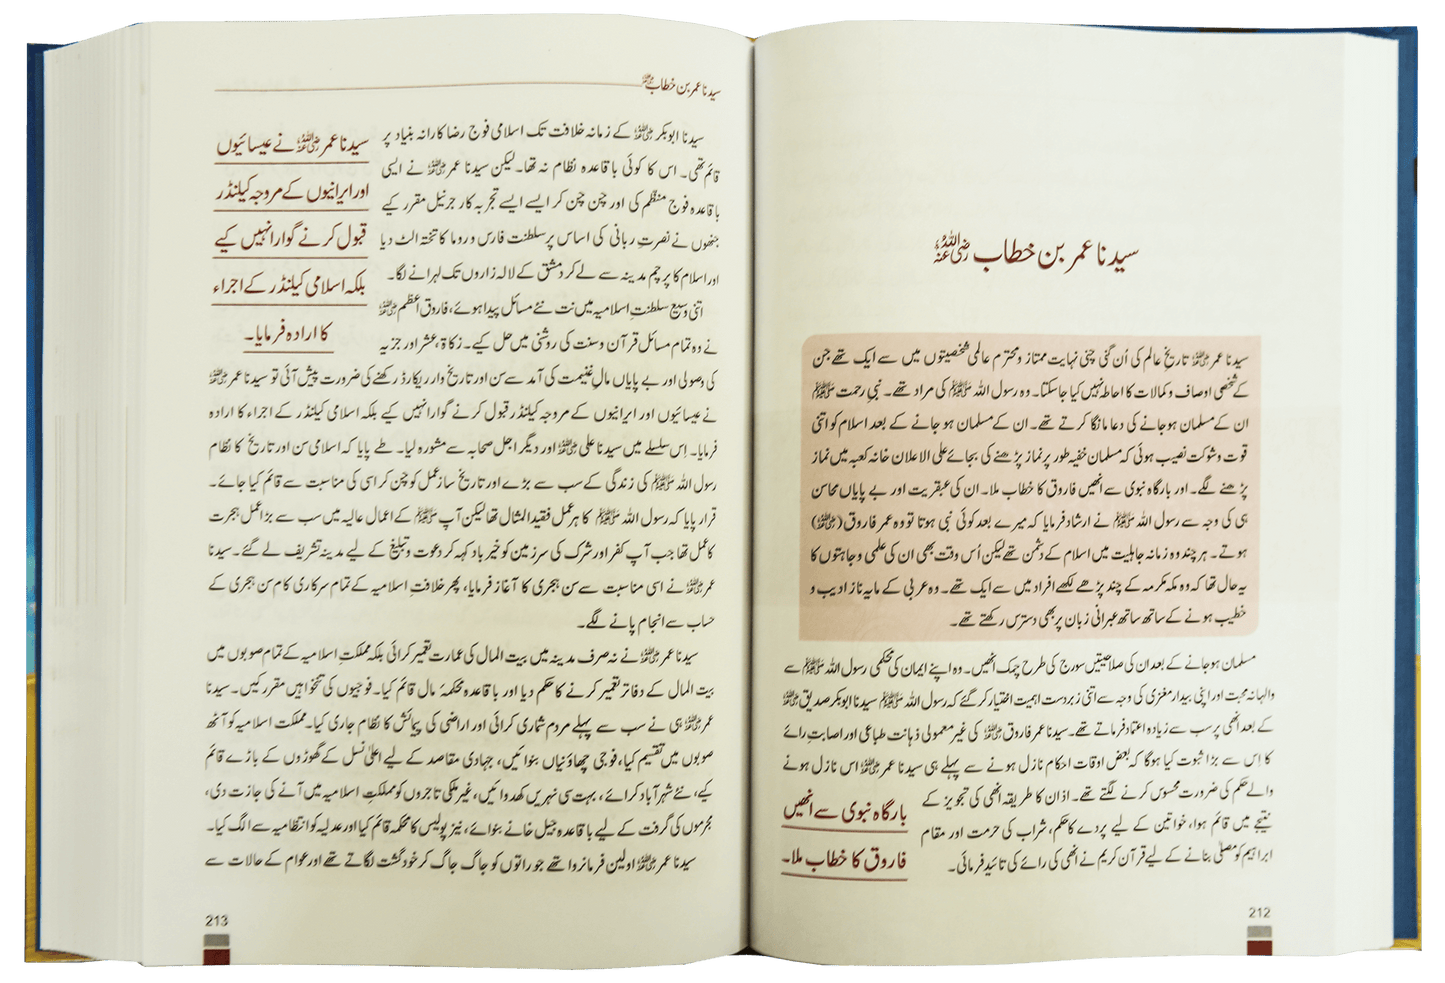 سیدنا عمر بن خطاب ؓ
سیدنا عمر ؓ تاریخِ عالم کی اُن گنی چنی نہایت ممتاز و محترم عالمی شخصیتوں میں سے ایک تھے جن
کے شخصی اوصاف و کمالات کا احاطہ نہیں کیا جاسکتا۔ وہ رسول اللہ ﷺ کی مراد تھے۔ نبیِ رحمت ﷺ
ان کے مسلمان ہوجانے کی دعا مانگا کرتے تھے۔ ان کے مسلمان ہو جانے کے بعد اسلام کو اتنی
قوت و شوکت نصیب ہوئی کہ مسلمان خفیہ طور پر نماز پڑھنے کی بجائے علی الاعلان خانہ کعبہ میں نماز
پڑھنے لگے۔ اور بارگاہ نبوی سے انھیں فاروق کا خطاب ملا۔ ان کی عبقریت اور بے پایاں محاسن
ہی کی وجہ سے رسول اللہ ﷺ نے ارشاد فرمایا کہ میرے بعد کوئی نبی ہوتا تو وہ عمر فاروق (ؓ)
ہوتے۔ ہر چند وہ زمانہ جاہلیت میں اسلام کے دشمن تھے لیکن اُس وقت بھی ان کی علمی وجاہتوں کا
یہ حال تھا کہ وہ مکہ مکرمہ کے چند پڑھے لکھے افراد میں سے ایک تھے۔ وہ عربی کے مایہ ناز ادیب و
خطیب ہونے کے ساتھ ساتھ عبرانی زبان پر بھی دسترس رکھتے تھے۔
مسلمان ہوجانے کے بعد ان کی صلاحیتیں سورج کی طرح چمک اٹھیں۔ وہ اپنے ایمان کی محکمی رسول اللہ ﷺ سے
والہانہ محبت اور اپنی بیدار مغزی کی وجہ سے اتنی زبردست اہمیت اختیار کر گئے کہ رسول اللہ ﷺ سیدنا ابوبکر صدیق ؓ
کے بعد انھی پر سب سے زیادہ اعتماد فرماتے تھے۔ سیدنا عمر فاروق ؓ کی غیر معمولی ذہانت طباعی اور اصابتِ رائے
کا اِس سے بڑا ثبوت کیا ہوگا کہ بعض اوقات احکام نازل ہونے سے پہلے ہی سیدنا عمر ؓ اس نازل ہونے
والے حکم کی ضرورت محسوس کرنے لگتے تھے۔ اذان کا طریقہ انھی کی تجویز کے
نتیجے میں قائم ہوا، خواتین کے لیے پردے کا حکم، شراب کی حرمت اور مقام
ابراہیم کو مصلیٰ بنانے کے لیے قرآن کریم نے انھی کی رائے کی تائید فرمائی۔
بارگاہ نبوی سے انھیں
فاروق کا خطاب ملا۔
212
سیدنا عمر بن خطاب ؓ
سیدنا ابوبکر ؓ کے زمانہ خلافت تک اسلامی فوج رضا کارانہ بنیاد پر
قائم تھی۔ اس کا کوئی باقاعدہ نظام نہ تھا۔ لیکن سیدنا عمر ؓ نے ایسی
باقاعدہ فوج منظم کی اور چن چن کر ایسے ایسے تجربہ کار جرنیل مقرر کیے
جنھوں نے نصرتِ ربانی کی اساس پر سلطنت فارس و روما کا تختہ الٹ دیا
اور اسلام کا پرچم مدینہ سے لے کر دمشق کے لالہ زاروں تک لہرانے لگا۔
اتنی وسیع سلطنتِ اسلامیہ میں نت نئے مسائل پیدا ہوئے، فاروق اعظم ؓ
نے وہ تمام مسائل قرآن و سنت کی روشنی میں حل کیے۔ زکاۃ، عشر اور جزیہ
سیدنا عمر ؓ نے عیسائیوں
اور ایرانیوں کے مروجہ کیلنڈر
قبول کرنے گوارا نہیں کیے
بلکہ اسلامی کیلنڈر کے اجراء
کا ارادہ فرمایا۔
کی وصولی اور بے پایاں مالِ غنیمت کی آمد سے سن اور تاریخ وار ریکارڈ رکھنے کی ضرورت پیش آئی تو سیدنا عمر ؓ
نے عیسائیوں اور ایرانیوں کے مروجہ کیلنڈر قبول کرنے گوارا نہیں کیے بلکہ اسلامی کیلنڈر کے اجراء کا ارادہ
فرمایا۔ اِس سلسلے میں سیدنا علی ؓ اور دیگر اجل صحابہ سے مشورہ لیا۔ طے پایا کہ اسلامی سن اور تاریخ کا نظام
رسول اللہ ﷺ کی زندگی کے سب سے بڑے اور تاریخ ساز عمل کو چن کر اسی کی مناسبت سے قائم کیا جائے۔
قرار پایا کہ رسول اللہ ﷺ کا ہر عمل فقید المثال تھا لیکن آپ ﷺ کے اعمال عالیہ میں سب سے بڑا عمل ہجرت
کا عمل تھا جب آپ کفر اور شرک کی سرزمین کو خیر باد کہہ کر دعوت و تبلیغ کے لیے مدینہ تشریف لے گئے۔ سیدنا
عمر ؓ نے اسی مناسبت سے سن ہجری کا آغاز فرمایا، پھر خلافتِ اسلامیہ کے تمام سرکاری کام سن ہجری کے
حساب سے انجام پانے لگے۔
سیدنا عمر ؓ نے نہ صرف مدینہ میں بیت المال کی عمارت تعمیر کرائی بلکہ مملکتِ اسلامیہ کے تمام صوبوں میں
بیت المال کے دفاتر تعمیر کرنے کا حکم دیا اور باقاعدہ محکمۂ مال قائم کیا۔ فوجیوں کی تنخواہیں مقرر کیں۔ سیدنا
عمر ؓ ہی نے سب سے پہلے مردم شماری کرائی اور اراضی کی پیمائش کا نظام جاری کیا۔ مملکت اسلامیہ کو آٹھ
صوبوں میں تقسیم کیا، فوجی چھاؤنیاں بنوائیں، جہادی مقاصد کے لیے اعلیٰ نسل کے گھوڑوں کے باڑے قائم
کیے، نئے شہر آباد کرائے، بہت سی نہریں کھدوائیں، غیر ملکی تاجروں کو مملکتِ اسلامیہ میں آنے کی جازت دی،
مجرموں کی گرفت کے لیے باقاعدہ جیل خانے بنوائے، نیز پولیس کا محکمہ قائم کیا اور عدلیہ کو انتظامیہ سے الگ کیا۔
سیدنا عمر ؓ اولین فرمانروا تھے جو راتوں کو جاگ جاگ کر خود گشت لگاتے تھے اور عوام کے حالات سے
213